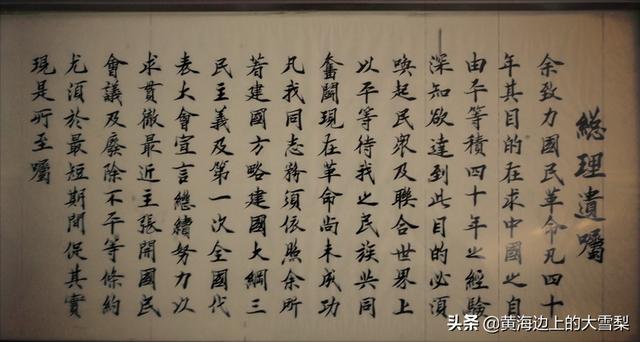 總理遺囑
余致力國民革命凡四十
年其目的在求中國之自
由平等積四十年之經驗
深知欲達到此目的必須
喚起民眾及聯合世界上
以平等待我之民族共同
奮鬪現在革命尚未成功
凡我同志務須依照余所
著建國方略建國大綱三
民主義及第一次全國代
表大會宣言繼續努力以
求貫徹最近主張開國民
會議及廢除不平等條約
尤須於最短期間促其實
現是所至囑
头条 @黄海边上的大雪梨